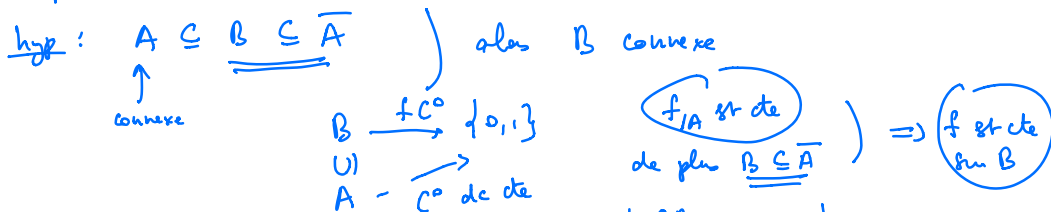 hyp : A ⊆ B ⊆ Ā ) alors B connexe
↑
connexe
B —f C°→ {0,1}
∪|
A - C° dc cte
f/A st cte
de plus B ⊆ Ā ) => f st cte
sur B